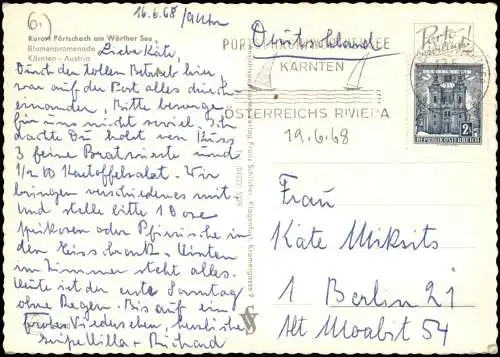 16.6.68
Kurort Pörtschach am Wörther See
Blumenpromenade
Kärnten - Austria
Liebe Käte,
Durch den tollen Betrieb hier,
war auf der Post alles durch-
einander. Bitte besorge
für uns nicht soviel. Ich
dachte Du holst von
3 feine Bratwürste und
1/2 Kartoffelsalat. Wir
bringen verschiedenes mit
und stelle bitte 1 Dose
oder Pfirsiche in
den Eisschrank. Hinten
im Zimmer steht alles.
Heute ist der erste Sonntag
ohne Regen. Bis auf ein
frohes Wiedersehen, herzliche
Grüße Willa + Richard
Deutschland
KÄRNTEN
ÖSTERREICHS RIVIERA
19.6.68
Porto!
2S
REPUBLIK ÖSTERREICH
Frau
Käte Miksits
1 Berlin 21
Alt Moabit 54